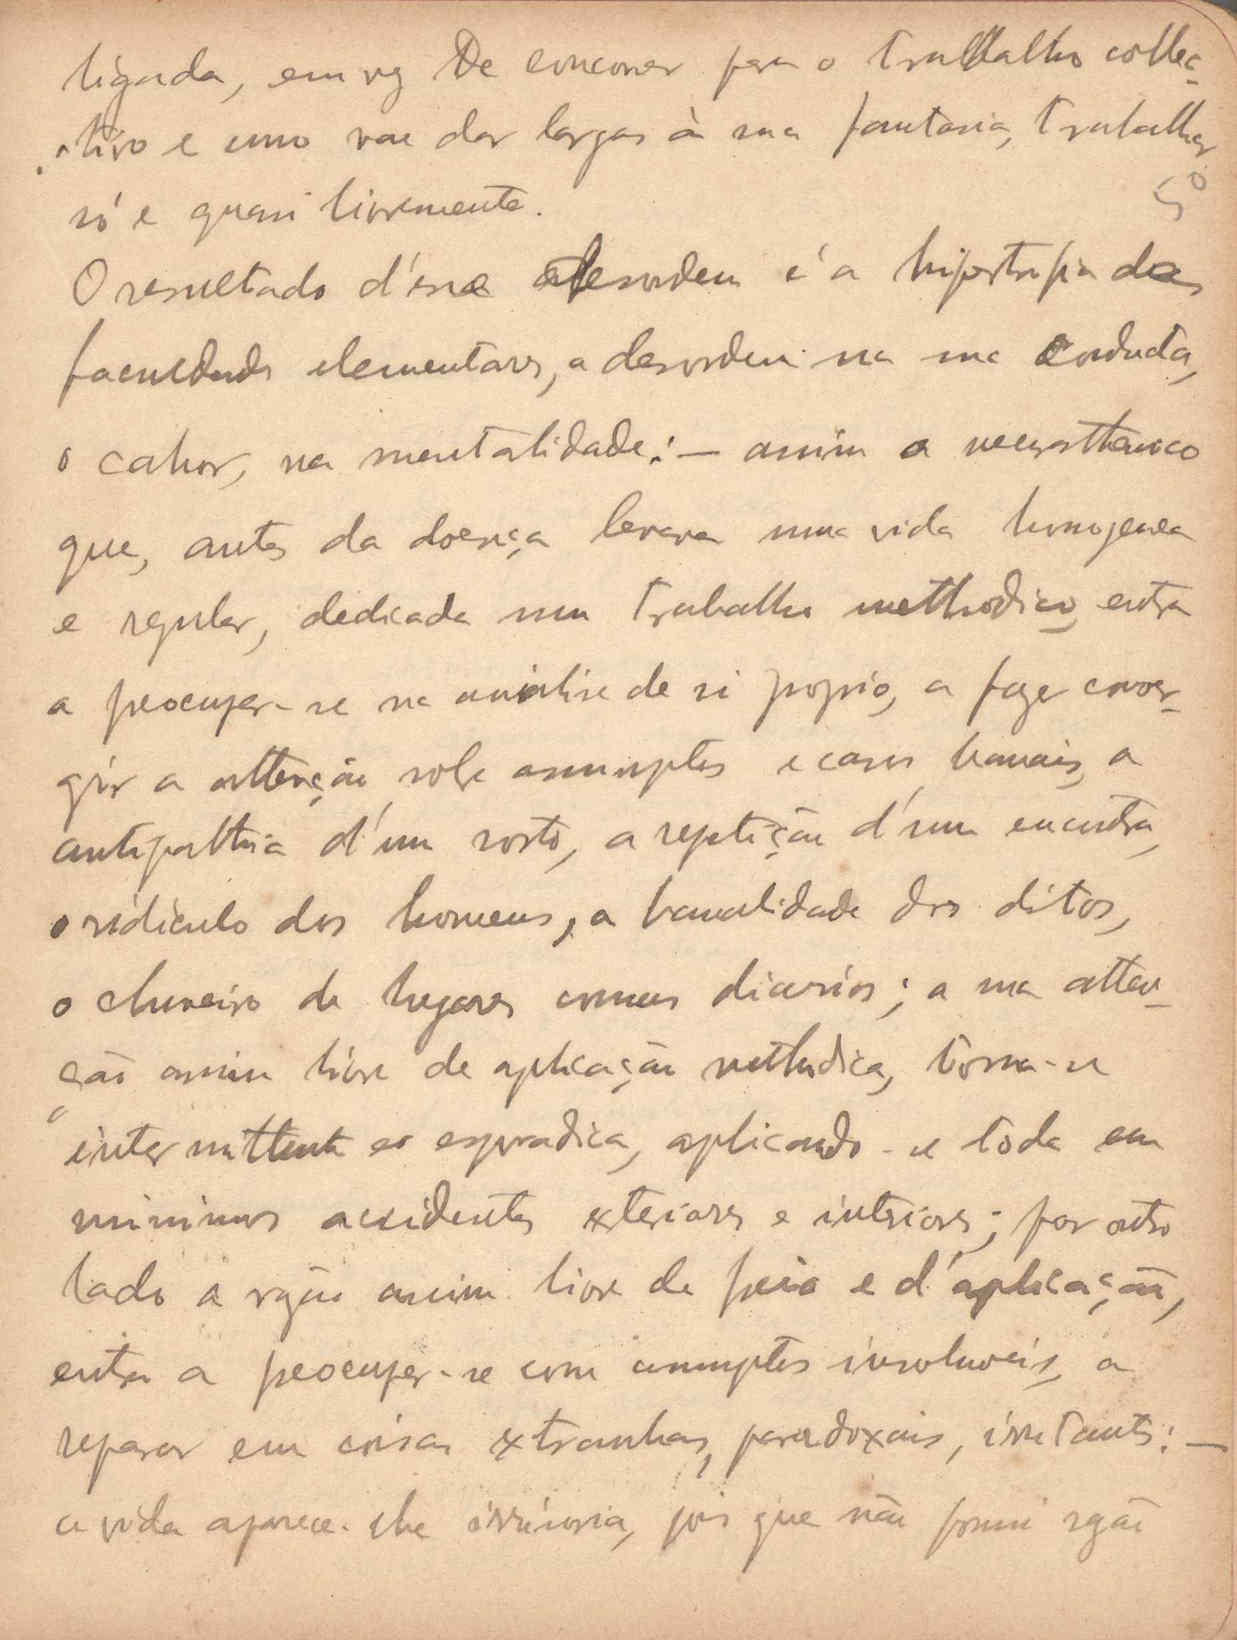 ligada, em vez de concorrer para o trabalho collec-
ctivo e uno vae dar largas à sua fantasia, trabalhar
só e quasi livremente.
5º
O resultado d'essa desordem é a hipertrofia das
faculdades elementares, a desordem na sua conducta,
o cahos, na mentalidade: — assim o neurasthenico
que, antes da doença levava uma vida homogenea
e regular, dedicada num trabalho methodico, entra
a preocupar-se na análise de si proprio, a fazer conver-
gir a attenção sobre assumptos e casos banais, a
antipathia d'um rosto, a repetição d'um encontro,
o ridiculo dos homens, a banalidade dos ditos,
o chuveiro de lugares comuns diarios; a sua atten-
ção assim livre de aplicação methodica, torna-se
intermittente e esporadica, aplicando-se toda em
minimos accidentes exteriores e interiores; por outro
lado a razão assim livre de peia e d'aplicação,
entra a preocupar-se com assumptos insoluveis, a
reparar em coisas extranhas, paradoxais, irritantes: —
a vida aparece-lhe irrisoria, pois que não possui razão